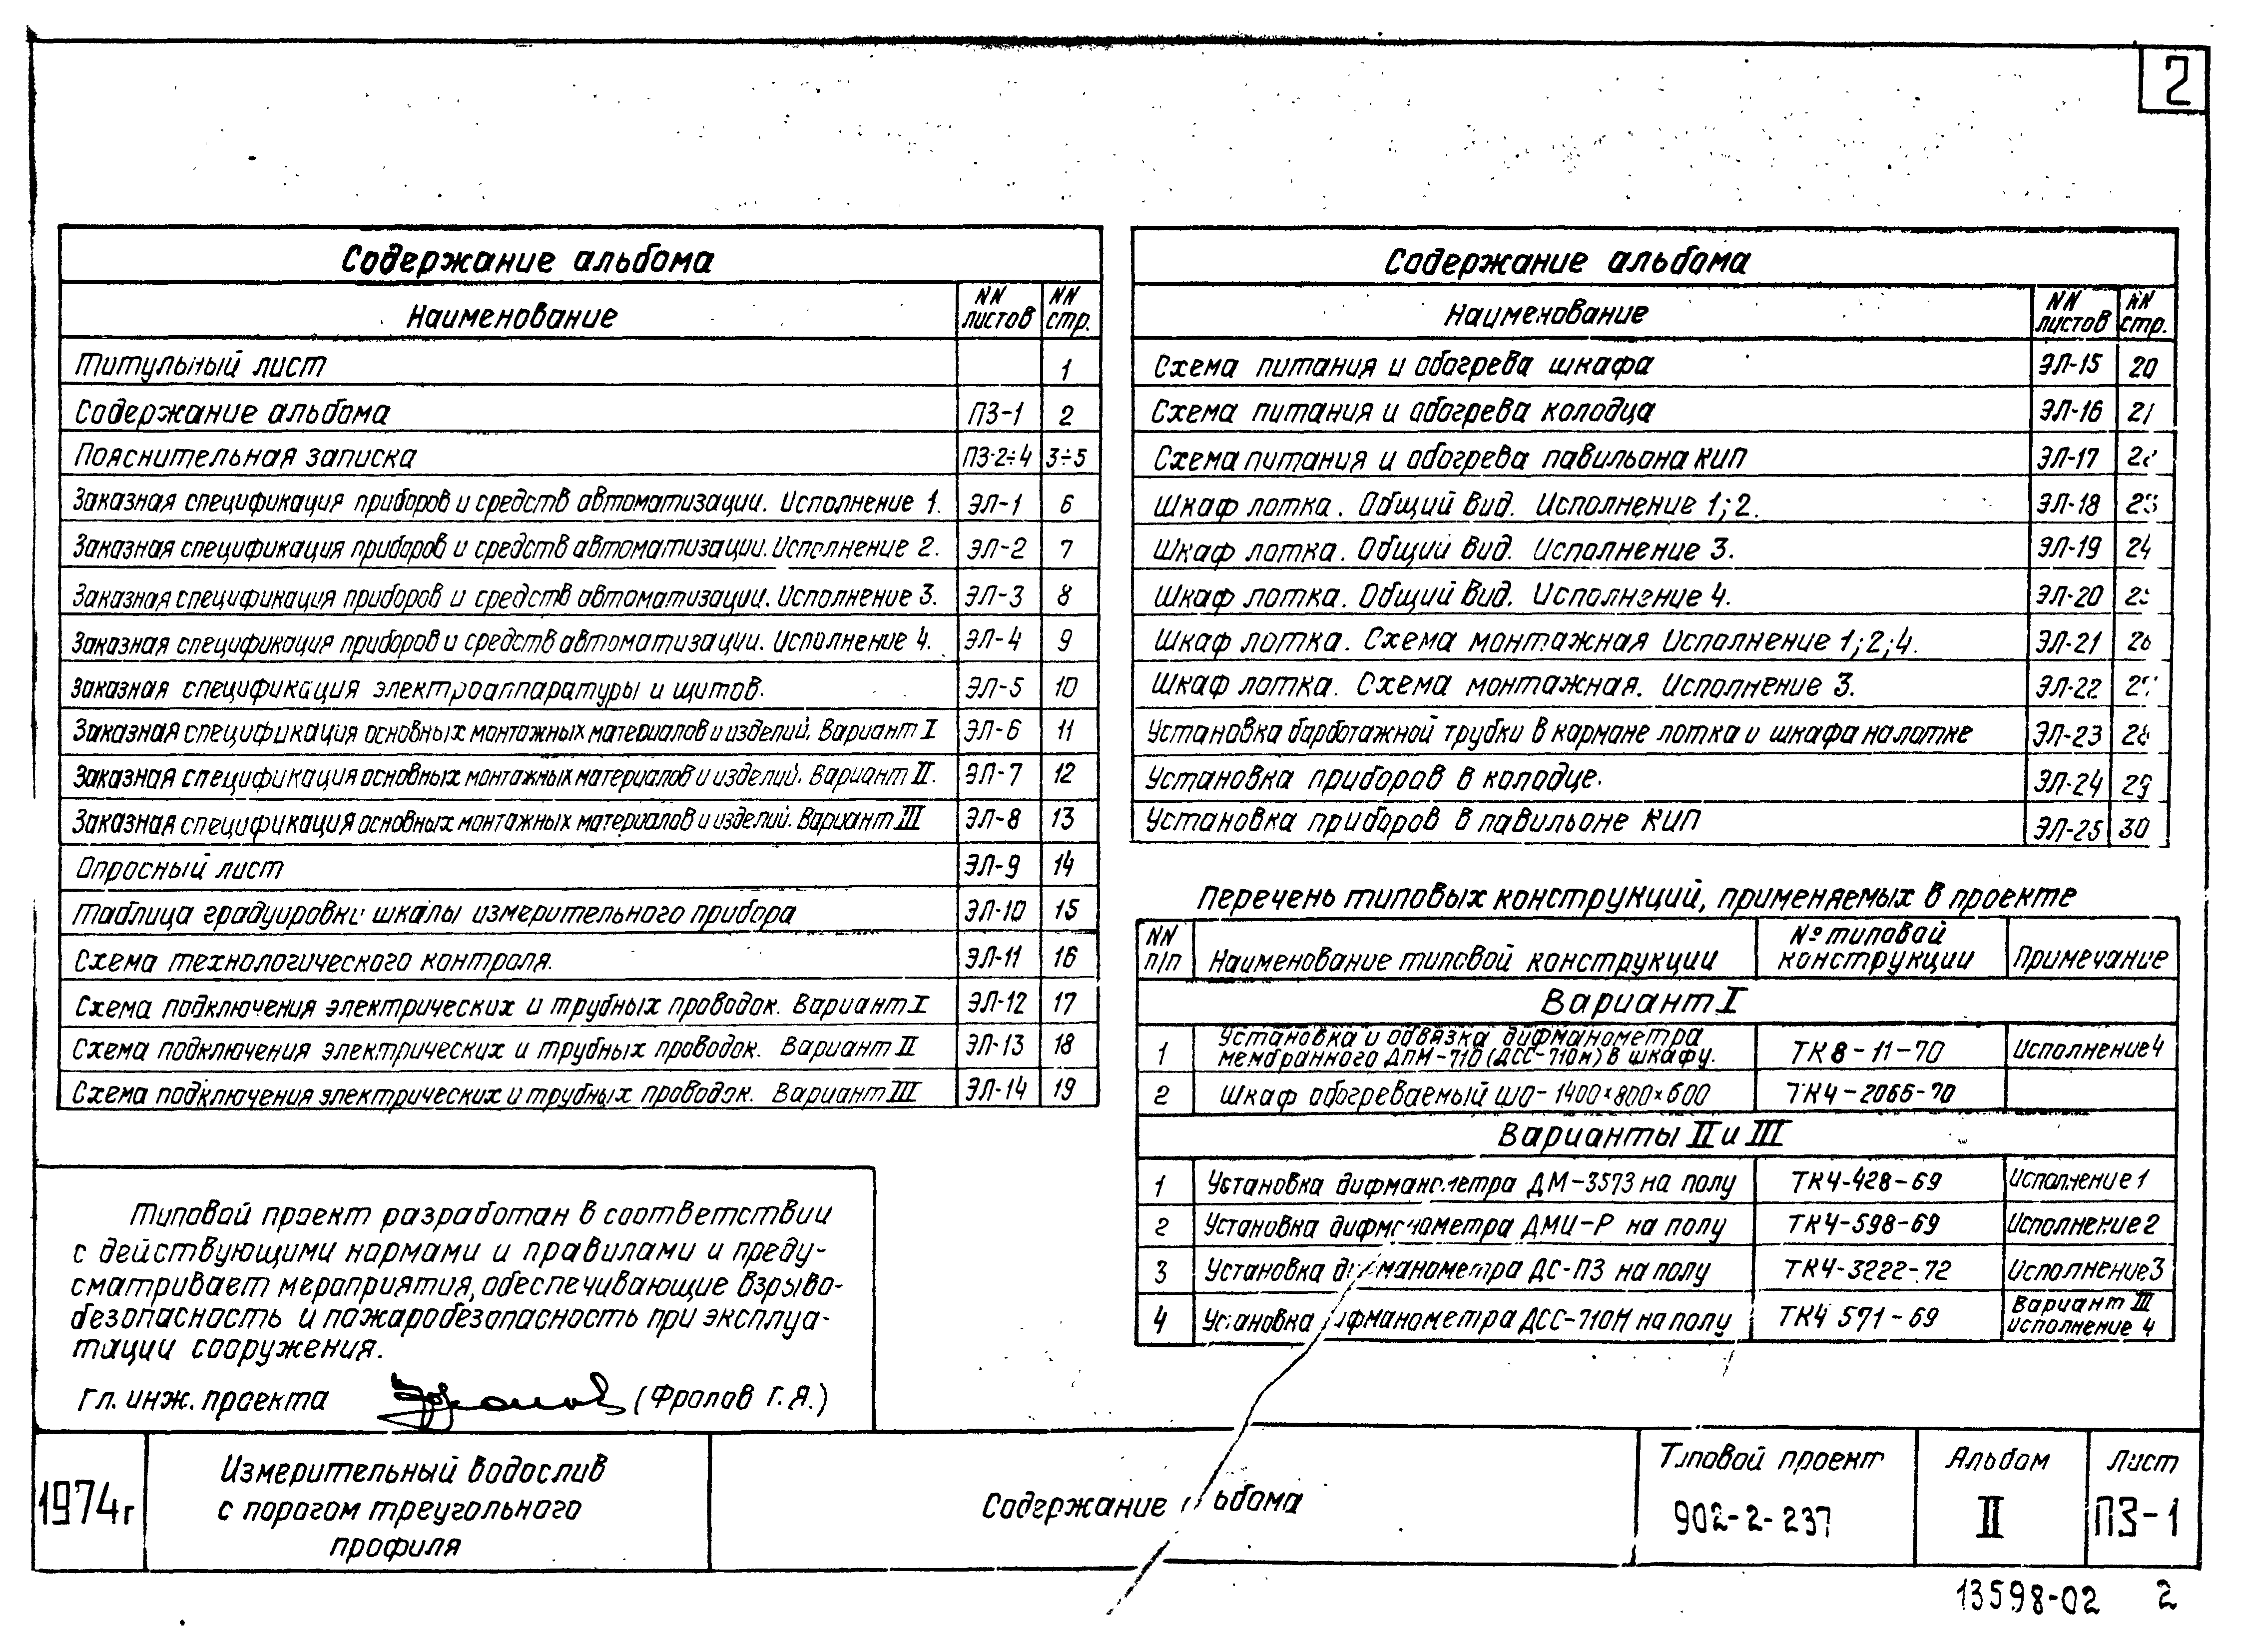 2
Содержание альбома
Наименование NN листов NN стр.
Титульный лист 1
Содержание альбома ПЗ-1 2
Пояснительная записка ПЗ-2÷4 3÷5
Заказная спецификация приборов и средств автоматизации. Исполнение 1. ЭЛ-1 6
Заказная спецификация приборов и средств автоматизации. Исполнение 2. ЭЛ-2 7
Заказная спецификация приборов и средств автоматизации. Исполнение 3. ЭЛ-3 8
Заказная спецификация приборов и средств автоматизации. Исполнение 4. ЭЛ-4 9
Заказная спецификация электроаппаратуры и щитов. ЭЛ-5 10
Заказная спецификация основных монтажных материалов и изделий. Вариант I ЭЛ-6 11
Заказная спецификация основных монтажных материалов и изделий. Вариант II. ЭЛ-7 12
Заказная спецификация основных монтажных материалов и изделий. Вариант III ЭЛ-8 13
Опросный лист ЭЛ-9 14
Таблица градуировки шкалы измерительного прибора ЭЛ-10 15
Схема технологического контроля. ЭЛ-11 16
Схема подключения электрических и трубных проводок. Вариант I ЭЛ-12 17
Схема подключения электрических и трубных проводок. Вариант II ЭЛ-13 18
Схема подключения электрических и трубных проводок. Вариант III ЭЛ-14 19
Содержание альбома
Наименование NN листов NN стр.
Схема питания и обогрева шкафа ЭЛ-15 20
Схема питания и обогрева колодца ЭЛ-16 21
Схема питания и обогрева павильона КИП ЭЛ-17
Шкаф лотка. Общий вид. Исполнение 1; 2. ЭЛ-18 23
Шкаф лотка. Общий вид. Исполнение 3. ЭЛ-19 24
Шкаф лотка. Общий вид. Исполнение 4. ЭЛ-20
Шкаф лотка. Схема монтажная Исполнение 1; 2; 4. ЭЛ-21 26
Шкаф лотка. Схема монтажная. Исполнение 3. ЭЛ-22
Установка барботажной трубки в кармане лотка и шкафа на лотке ЭЛ-23 28
Установка приборов в колодце. ЭЛ-24 29
Установка приборов в павильоне КИП ЭЛ-25 30
Перечень типовых конструкций, применяемых в проекте
NN п/п Наименование типовой конструкции № типовой конструкции Примечание
Вариант I
Установка и обвязка дифманометра
мембранного ДПМ-710 (ДСС-710М) в шкафу.
1 ТК8-11-70 Исполнение 4
2 Шкаф обогреваемый ШО-1400×800×600 ТК4-2066-70
Варианты II и III
1 Установка дифманометра ДМ-3573 на полу ТК4-428-69 Исполнение 1
2 Установка дифманометра ДМИ-Р на полу ТК4-598-69 Исполнение 2
3 Установка дифманометра ДС-ПЗ на полу ТК4-3222-72 Исполнение 3
4 Установка дифманометра ДСС-710М на полу ТК4 571-69 Вариант III
исполнение 4
Типовой проект разработан в соответствии
с действующими нормами и правилами и преду-
сматривает мероприятия, обеспечивающие взрыво-
безопасность и пожаробезопасность при эксплуа-
тации сооружения.
Гл. инж. проекта (Фролов Г.Я.)
1974г
Измерительный водослив
с порогом треугольного
профиля
Содержание альбома
Типовой проект
902-2-237
Альбом
II
Лист
ПЗ-1
13598-02 2